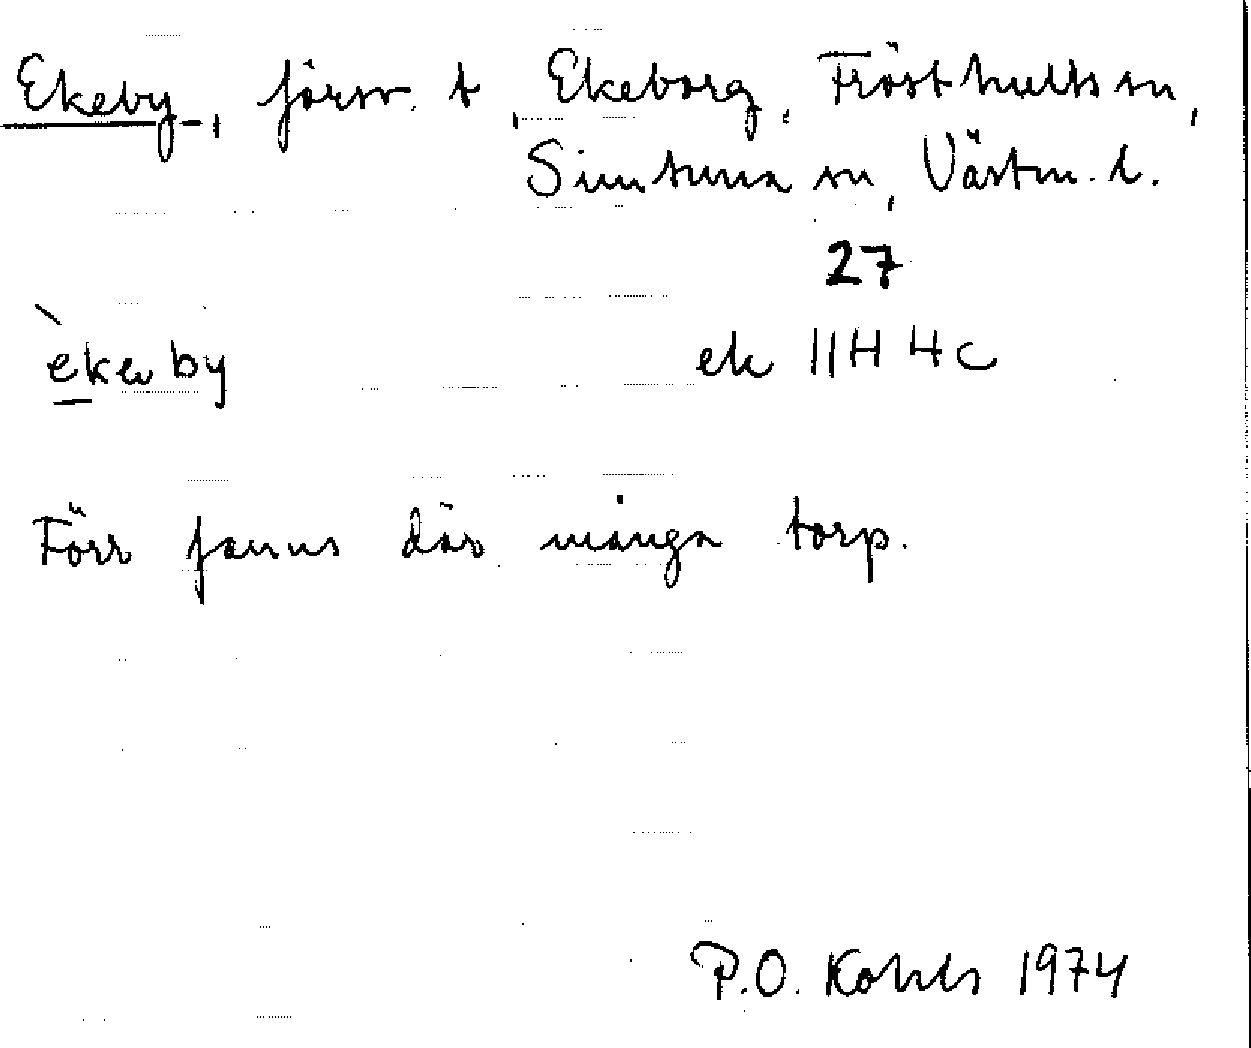 Ekeby, försv. t. Ekeborg, Frösthults sn,
Simtuna sn, Västm. l.
27
èkeby ek 11H 4c
Förr fanns där många torp.
P.O. Kohls 1974